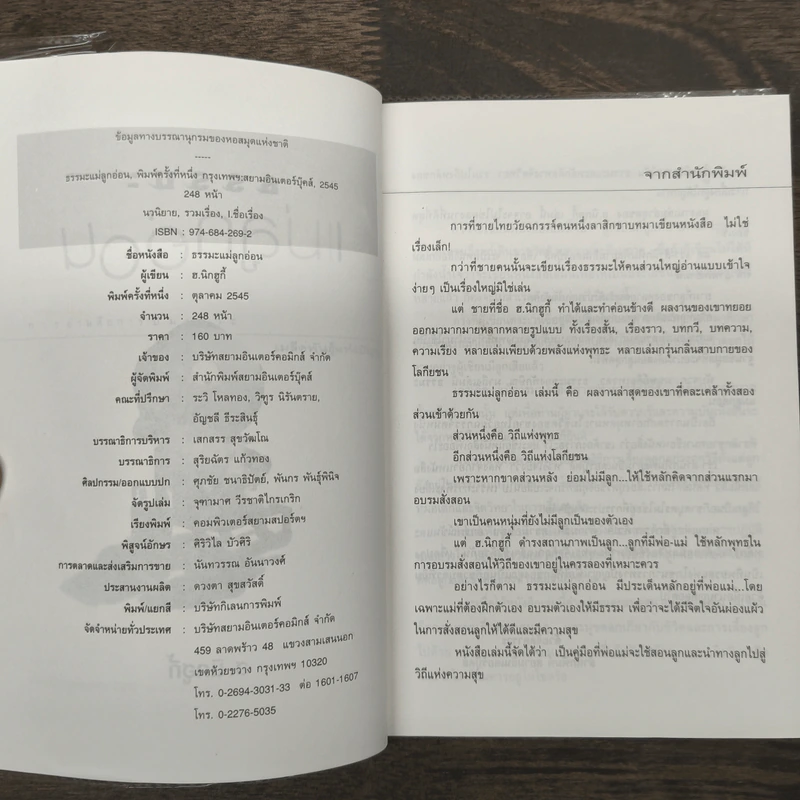 ข้อมูลทางบรรณานุกรมของหอสมุดแห่งชาติ
-----
ธรรมะแม่ลูกอ่อน, พิมพ์ครั้งที่หนึ่ง กรุงเทพฯ:สยามอินเตอร์บุ๊คส์, 2545
248 หน้า
นวนิยาย, รวมเรื่อง, I.ชื่อเรื่อง
ISBN : 974-684-269-2
ชื่อหนังสือ : ธรรมะแม่ลูกอ่อน
ผู้เขียน : ฮ.นิกฮูกี้
พิมพ์ครั้งที่หนึ่ง : ตุลาคม 2545
จำนวน : 248 หน้า
ราคา : 160 บาท
เจ้าของ : บริษัทสยามอินเตอร์คอมิกส์ จำกัด
ผู้จัดพิมพ์ : สำนักพิมพ์สยามอินเตอร์บุ๊คส์
คณะที่ปรึกษา : ระวิ โหลทอง, วิฑูร นิรันตราย,
อัญชลี ธีระสินธุ์
บรรณาธิการบริหาร : เสกสรร สุขวัฒโณ
บรรณาธิการ : สุริยฉัตร แก้วทอง
ศิลปกรรม/ออกแบบปก : ศุภชัย ชนาธิปัตย์, พันกร พันธุ์พินิจ
จัดรูปเล่ม : จุฑามาศ วีรชาติไกรเกริก
เรียงพิมพ์ : คอมพิวเตอร์สยามสปอร์ตฯ
พิสูจน์อักษร : ศิริวิไล บัวศิริ
การตลาดและส่งเสริมการขาย : นันทวรรณ อันนาวงศ์
ประสานงานผลิต : ดวงตา สุขสวัสดิ์
พิมพ์/แยกสี : บริษัทกิเลนการพิมพ์
จัดจำหน่ายทั่วประเทศ : บริษัทสยามอินเตอร์คอมิกส์ จำกัด
459 ลาดพร้าว 48 แขวงสามเสนนอก
เขตห้วยขวาง กรุงเทพฯ 10320
โทร. 0-2694-3031-33 ต่อ 1601-1607
โทร. 0-2276-5035
จากสำนักพิมพ์
การที่ชายไทยวัยฉกรรจ์คนหนึ่งลาสิกขาบทมาเขียนหนังสือ ไม่ใช่
เรื่องเล็ก!
กว่าที่ชายคนนั้นจะเขียนเรื่องธรรมะให้คนส่วนใหญ่อ่านแบบเข้าใจ
ง่ายๆ เป็นเรื่องใหญ่มิใช่เล่น
แต่ ชายที่ชื่อ ฮ.นิกฮูกี้ ทำได้และทำค่อนข้างดี ผลงานของเขาทยอย
ออกมามากมายหลากหลายรูปแบบ ทั้งเรื่องสั้น, เรื่องราว, บทกวี, บทความ,
ความเรียง หลายเล่มเพียบด้วยพลังแห่งพุทธะ หลายเล่มกรุ่นกลิ่นสาบกายของ
โลกียชน
ธรรมะแม่ลูกอ่อน เล่มนี้ คือ ผลงานล่าสุดของเขาที่คละเคล้าทั้งสอง
ส่วนเข้าด้วยกัน
ส่วนหนึ่งคือ วิถีแห่งพุทธ
อีกส่วนหนึ่งคือ วิถีแห่งโลกียชน
เพราะหากขาดส่วนหลัง ย่อมไม่มีลูก...ให้ใช้หลักคิดจากส่วนแรกมา
อบรมสั่งสอน
เขาเป็นคนหนุ่มที่ยังไม่มีลูกเป็นของตัวเอง
แต่ ฮ.นิกฮูกี้ ดำรงสถานภาพเป็นลูก...ลูกที่มีพ่อ-แม่ ใช้หลักพุทธใน
การอบรมสั่งสอนให้วิถีของเขาอยู่ในครรลองที่เหมาะควร
อย่างไรก็ตาม ธรรมะแม่ลูกอ่อน มีประเด็นหลักอยู่ที่พ่อแม่...โดย
เฉพาะแม่ที่ต้องฝึกตัวเอง อบรมตัวเองให้มีธรรม เพื่อว่าจะได้มีจิตใจอันผ่องแผ้ว
ในการสั่งสอนลูกให้ได้ดีและมีความสุข
หนังสือเล่มนี้จัดได้ว่า เป็นคู่มือที่พ่อแม่จะใช้สอนลูกและนำทางลูกไปสู่
วิถีแห่งความสุข